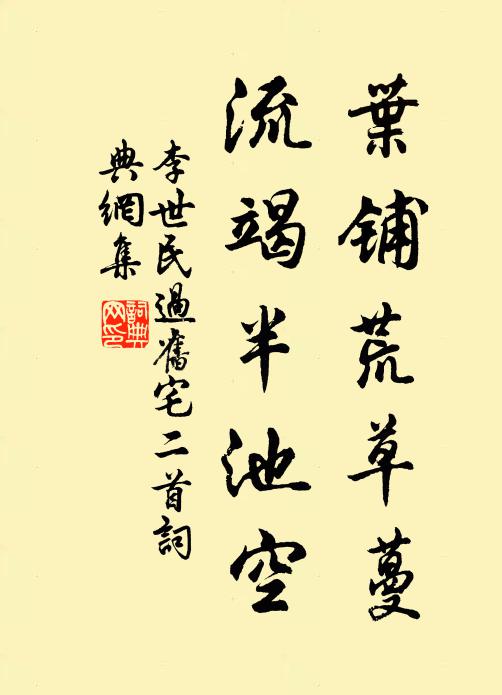 葉鋪荒草蔓
流竭半池空
李世民過舊宅二首詞
典網集
詞典
网印